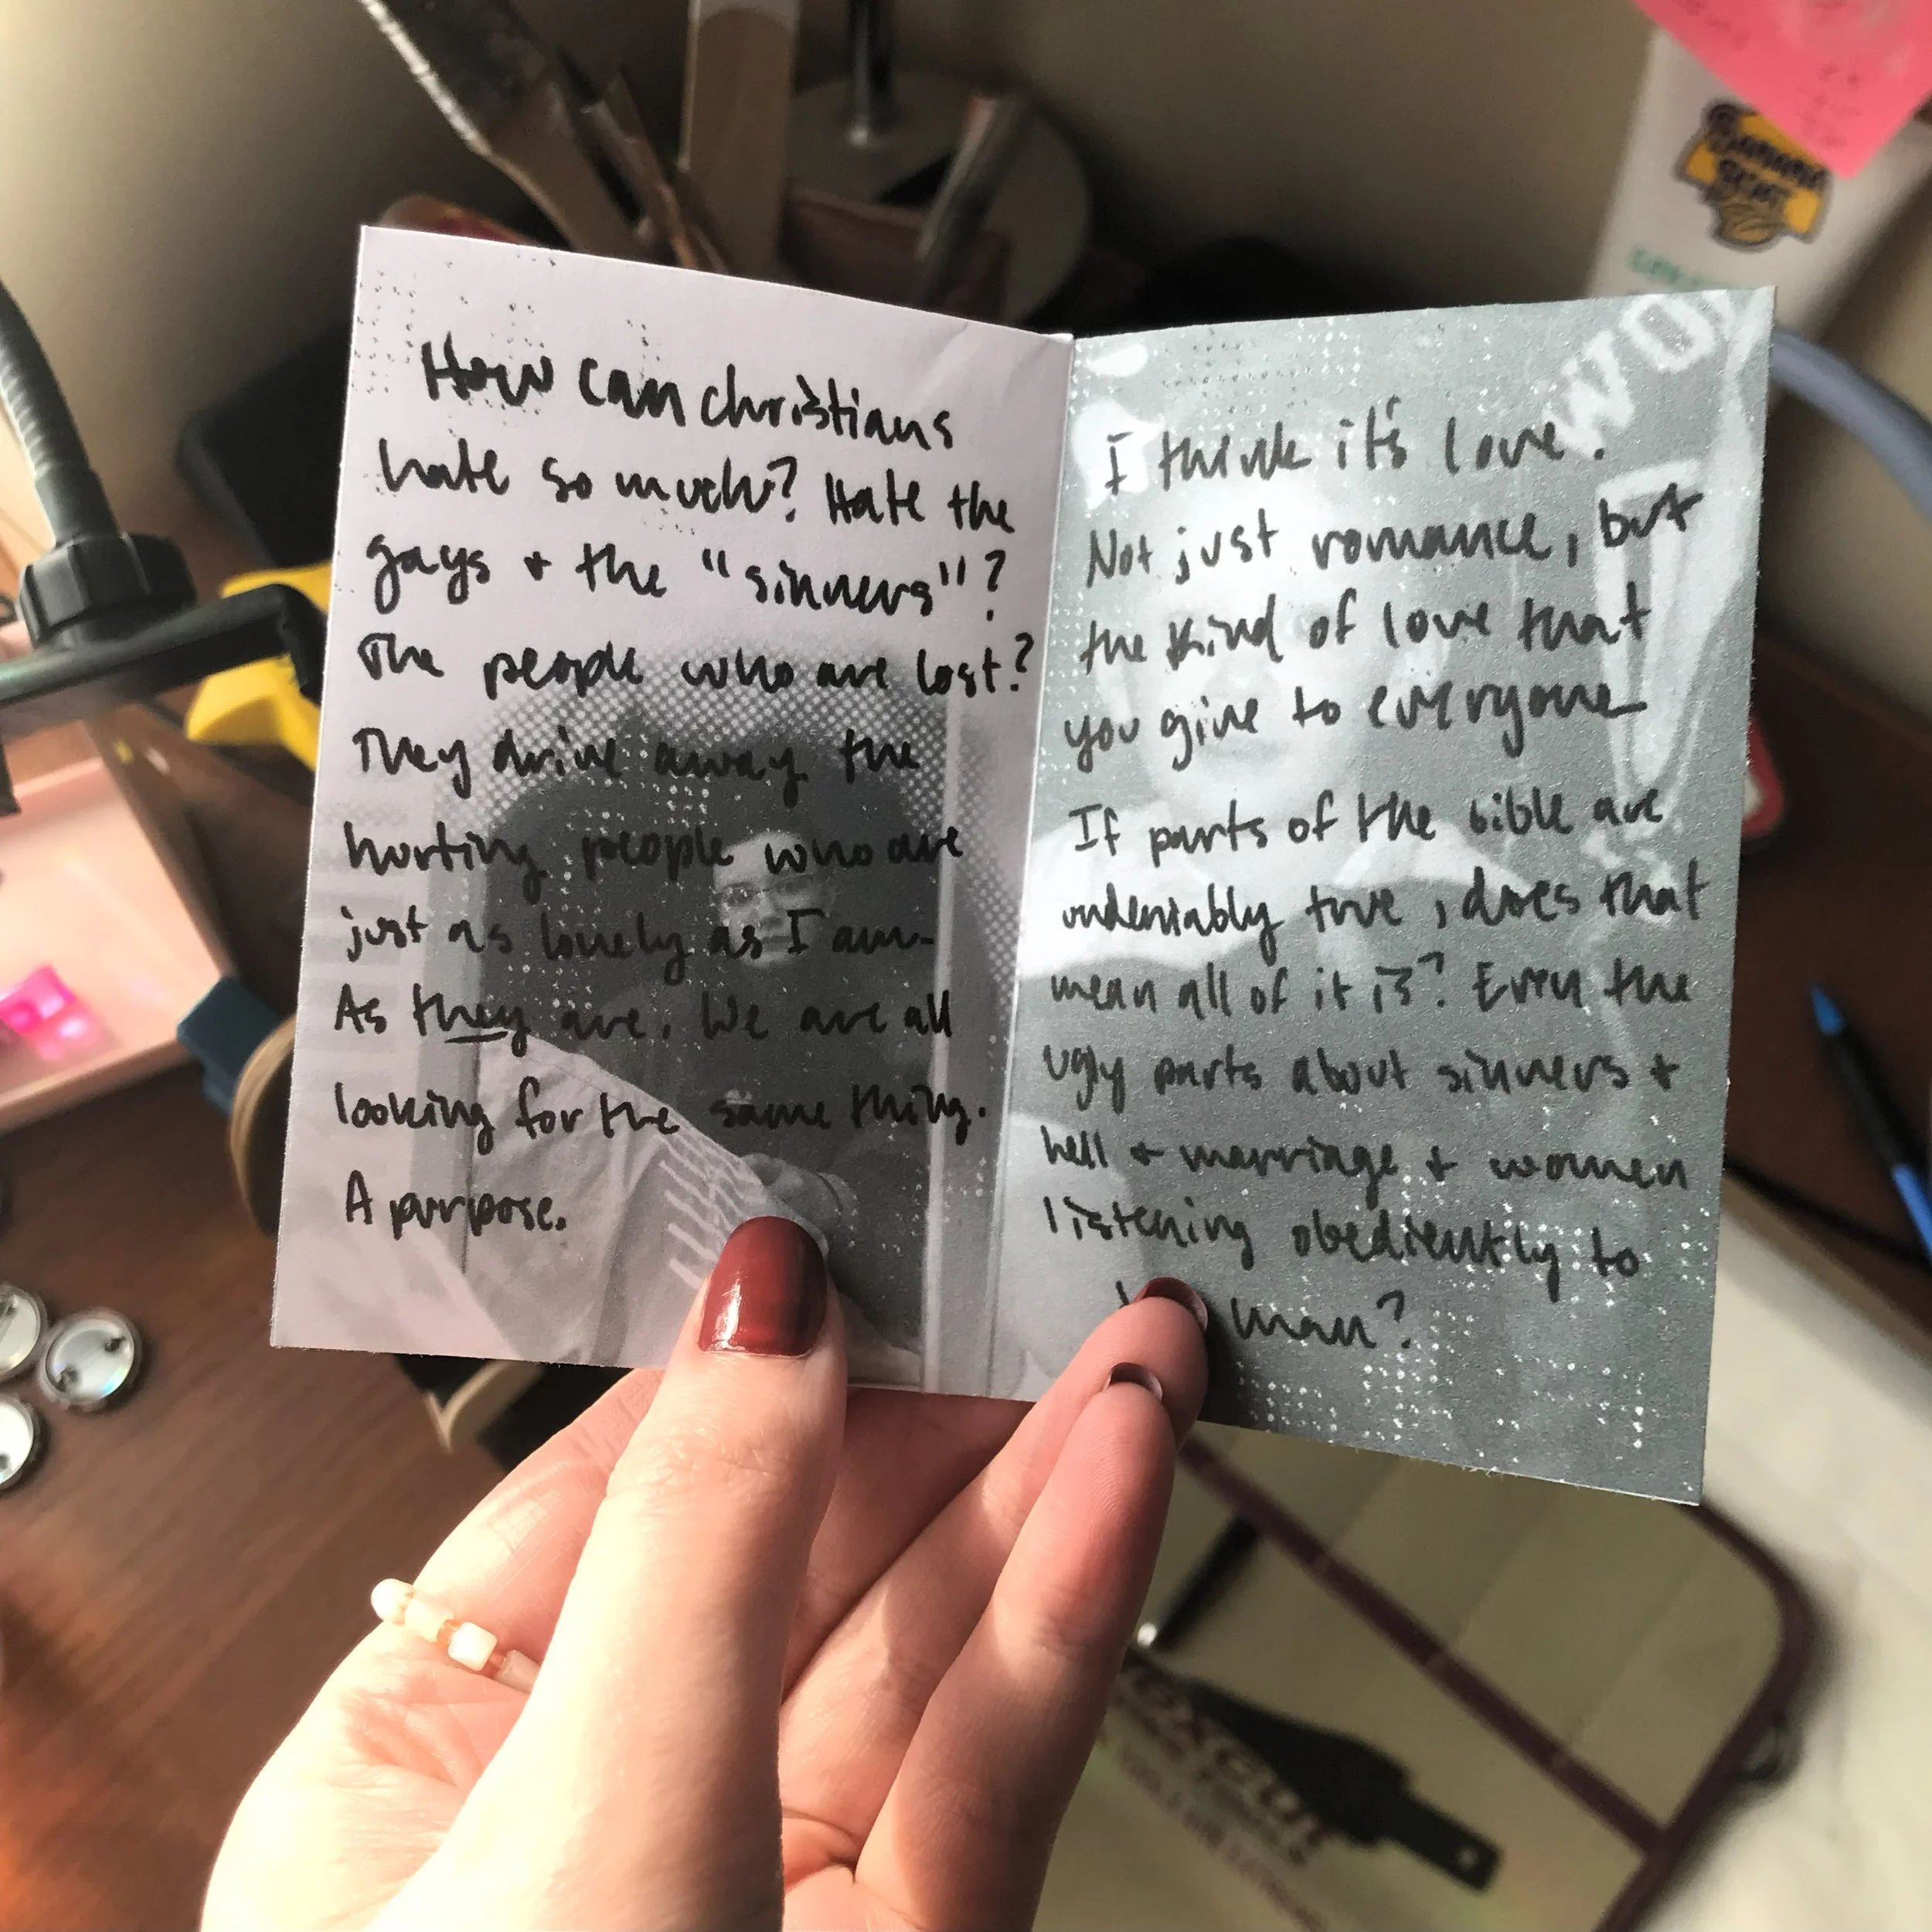 How can christians
hate so much? Hate the
gays + the "sinners"?
The people who are lost?
They drive away the
hurting people who are
just as lonely as I am-
As they are. We are all
looking for the same thing.
A purpose.
I think it's love.
Not just romance, but
the kind of love that
you give to everyone
If parts of the bible are
undeniably true, does that
mean all of it is? Even the
ugly parts about sinners +
hell + marriage + women
listening obediently to
man?
BANANA
BOAT